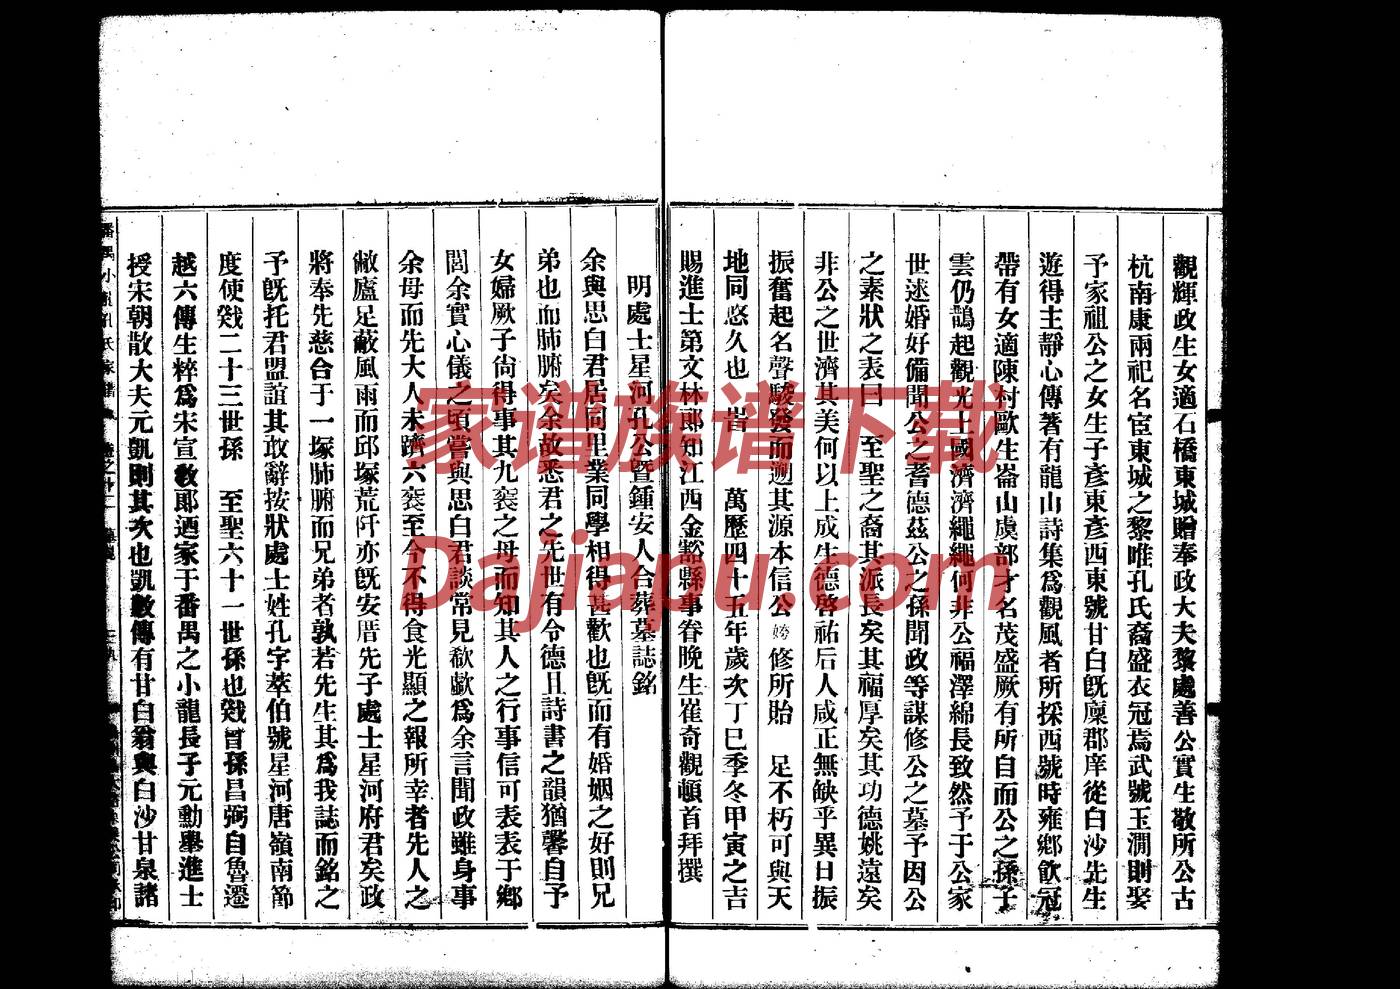 觀輝政生女適石橋東城贈奉政大夫黎處善公實生敬所公古
杭南康兩祀名宦東城之黎唯孔氏裔盛衣冠焉武號玉澗則娶
予家祖公之女生子彥東彥西東號甘白旣廩郡庠從白沙先生
遊得主靜心傳著有龍山詩集爲觀風者所採西號時雍鄉飮冠
帶有女適陳村歐生崙山虞部才名茂盛厥有所自而公之孫子
雲仍鵲起觀光上國濟濟繩繩何非公福澤綿長致然予于公家
世述婚好備聞公之耆德茲公之孫聞政等謀修公之墓予因公
之素狀之表曰 至聖之裔其派長矣其福厚矣其功德姚遠矣
非公之世濟其美何以上成生德啓祐后人咸正無缺乎異日振
振奮起名聲駿發而遡其源本信公 修所貽 足不朽可與天
地同悠久也 旹 萬歷四十五年歲次丁巳季冬甲寅之吉
賜進士第文林郎知江西金谿縣事眷晚生崔奇觀頓首拜撰
明處士星河孔公暨鍾安人合葬墓誌銘
余與思白君居同里業同學相得甚歡也旣而有婚姻之好則兄
弟也而肺腑矣余故悉君之先世有令德且詩書之韻猶馨自予
女婦厥子尙得事其九袠之母而知其人之行事信可表表于鄉
閭余實心儀之頃嘗與思白君談常見欷歔爲余言聞政雖身事
余母而先大人未躋六袠至今不得食光顯之報所幸者先人之
敝廬足蔽風雨而邱塚荒阡亦旣安厝先子處士星河府君矣政
將奉先慈合于一塚肺腑而兄弟者孰若先生其爲我誌而銘之
予旣托君盟誼其敢辭按狀處士姓孔字萃伯號星河唐嶺南節
度使戣二十三世孫 至聖六十一世孫也戣曾孫昌弼自魯遷
越六傳生粹爲宋宣敎郎迺家于番禺之小龍長子元勳舉進士
授宋朝散大夫元凱則其次也凱數傳有甘白翁與白沙甘泉諸
番禺小龍孔氏家譜
家谱族谱下载
Dajiapu.com